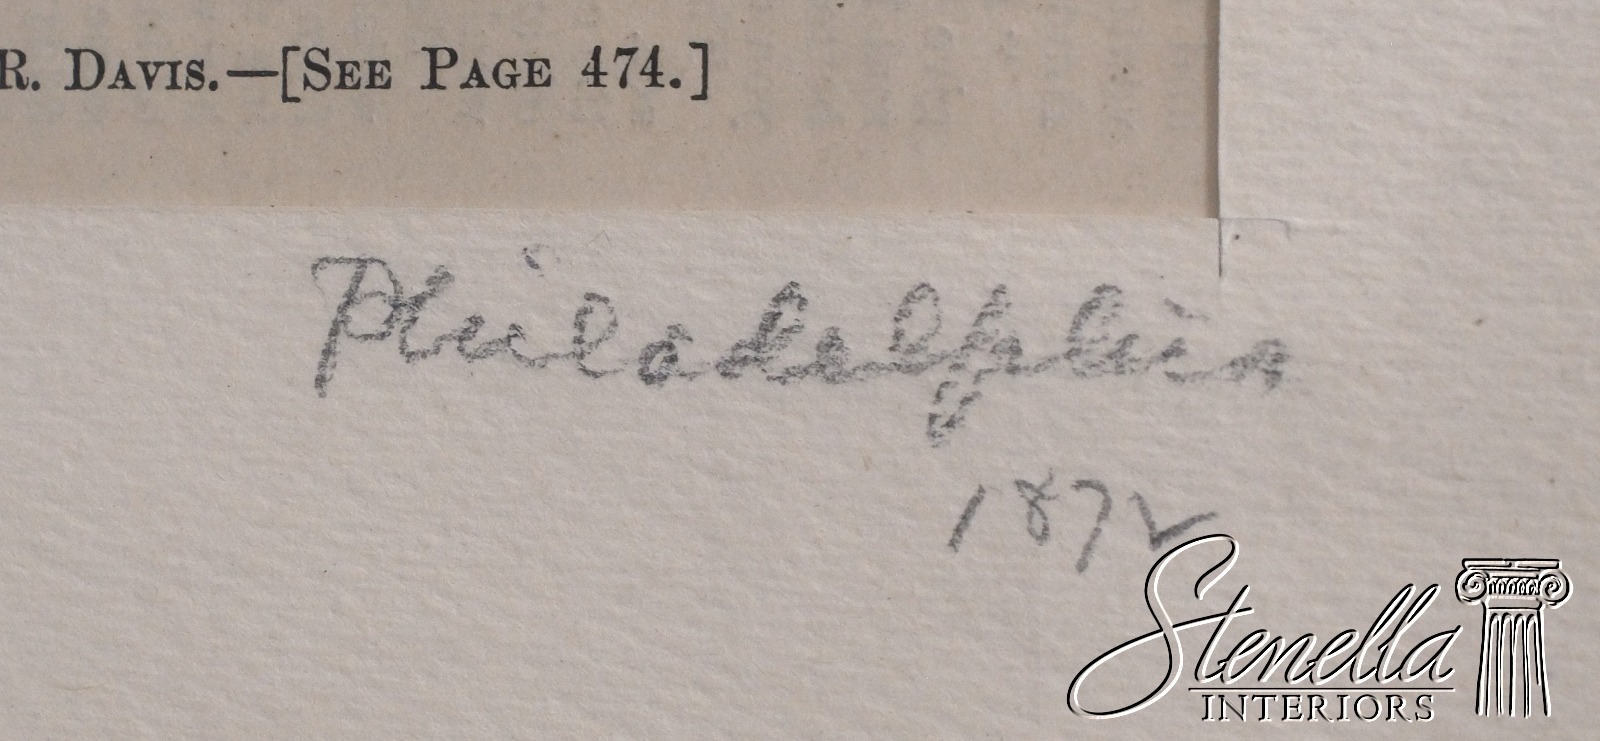 R. DAVIS.—[SEE PAGE 474.]
Philadelphia
1872
Stenella
INTERIORS